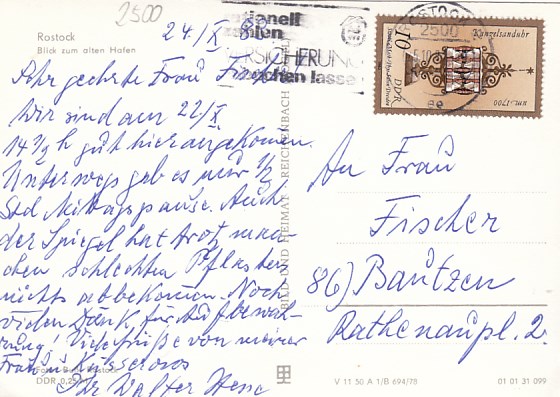 2500
24/X 83
Rostock
Blick zum alten Hafen
Sehr geehrte Frau Fischer
Wir sind am 22/X.
14 1/2 h gut hier angekommen.
Unterwegs gab es nur 1/2
Std Mittagspause. Auch
der Spiegel hat trotz man-
chen schlechten Pflaster
nichts abbekommen. Noch
vielen Dank für Aufbewah-
rung! Viele Grüße von meiner
Frau u.
Ihr Walter
Foto: Rostock
DDR
BILD UND HEIMAT REICHENBACH
ROSTOCK
2500
Kanzelsanduhr
um 1700
10
DDR
An Frau
Fischer
86) Bautzen
Rathenaupl. 2.
V 11 50 A 1/B 694/78
01 01 31 099